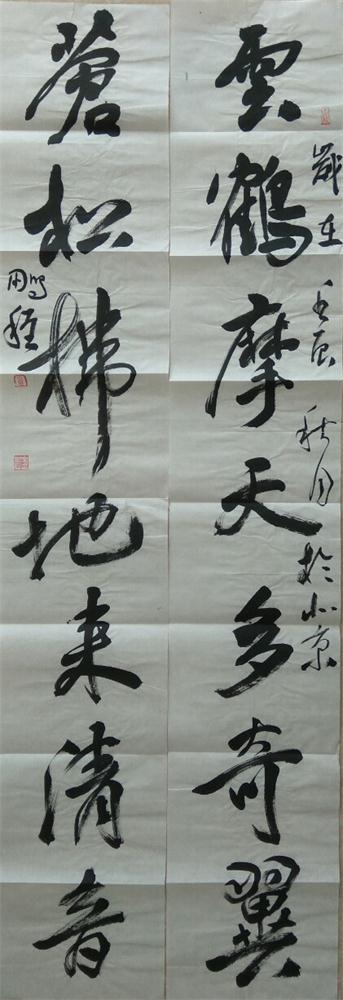 雲鶴摩天多奇翼
歲在壬辰秋月於北京
蒼松拂地來清音